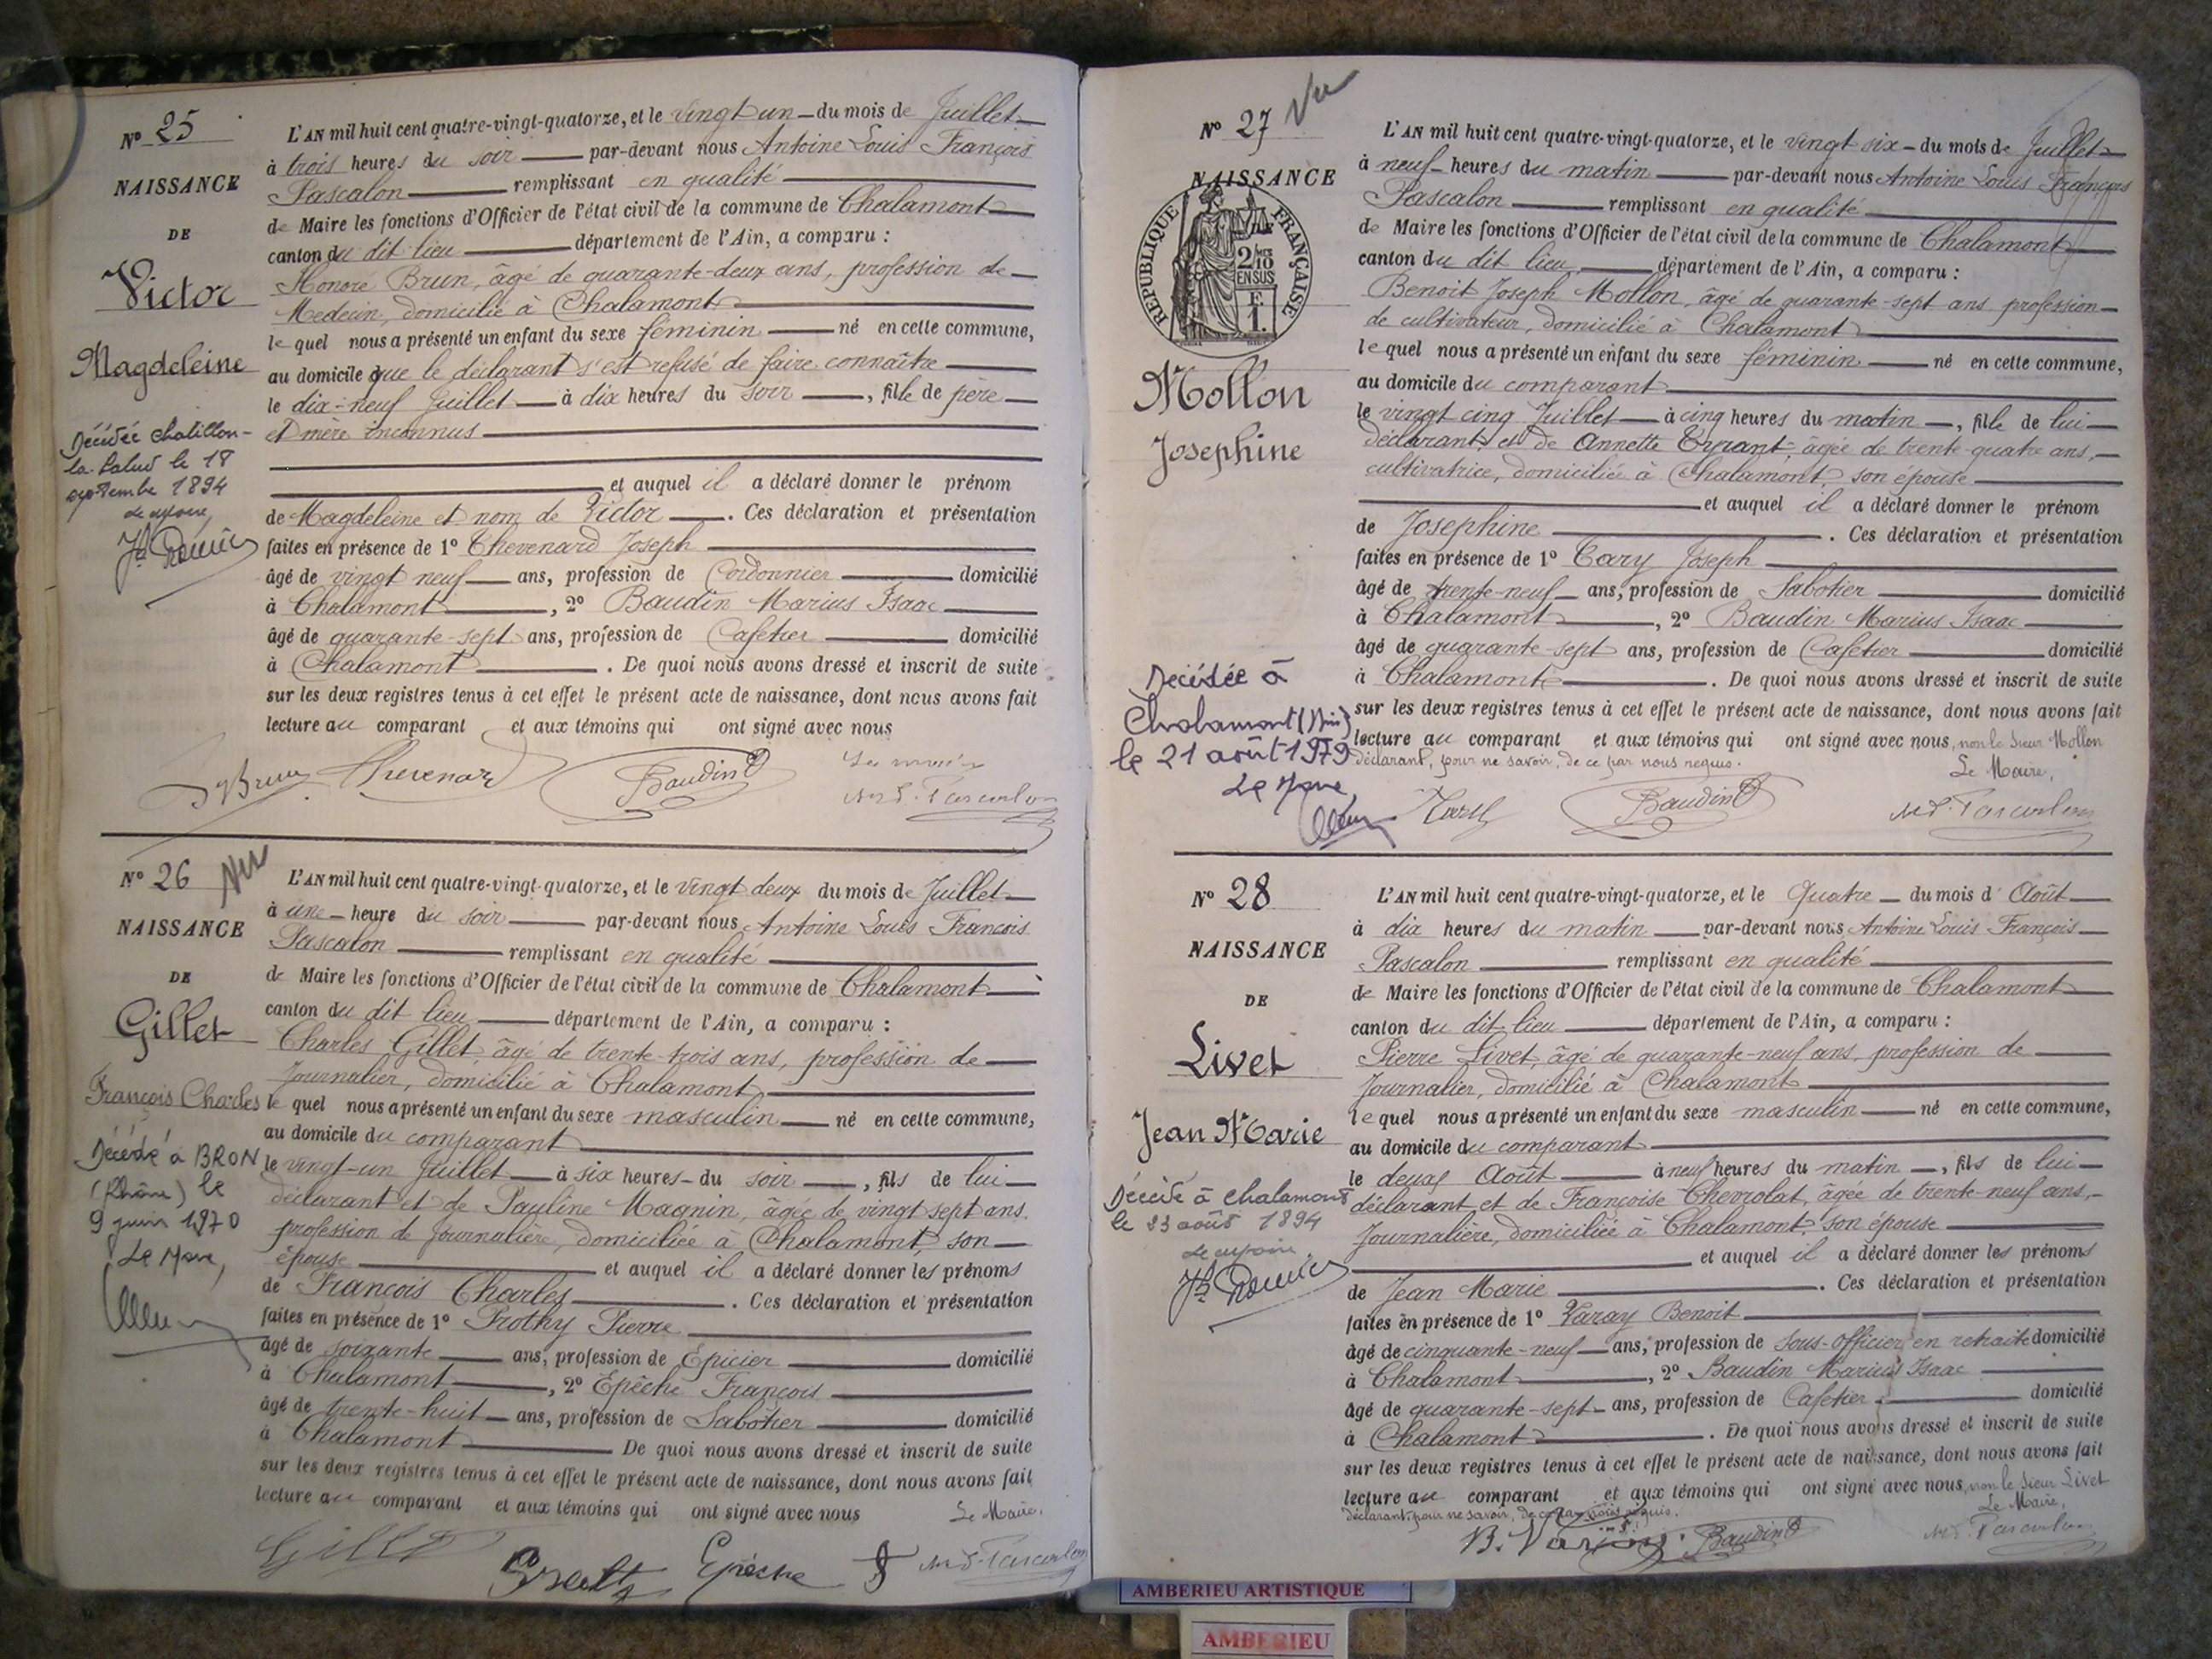 Nº 25
NAISSANCE
DE
Victor
Magdeleine
Décédée Chatillon-
la-Palud le 18
septembre 1894
L'AN mil huit cent quatre-vingt-quatorze, et le vingt un du mois de Juillet
à trois heures du soir par-devant nous Antoine Louis François
Pascalon remplissant en qualité
de Maire les fonctions d'Officier de l'état civil de la commune de Chalamont
canton du dit lieu département de l'Ain, a comparu :
Honoré Brun, âgé de quarante-deux ans, profession de
Medecin, domicilié à Chalamont
lequel nous a présenté un enfant du sexe féminin né en cette commune,
au domicile que le déclarant s'est refusé de faire connaître
le dix-neuf Juillet à dix heures du soir, fille de père
et mère inconnus
et auquel il a déclaré donner le prénom
de Magdeleine et nom de Victor. Ces déclaration et présentation
faites en présence de 1º Thevenard Joseph
âgé de vingt neuf ans, profession de Cordonnier domicilié
à Chalamont, 2º Baudin Marius Isaac
âgé de quarante-sept ans, profession de Cafetier domicilié
à Chalamont. De quoi nous avons dressé et inscrit de suite
sur les deux registres tenus à cet effet le présent acte de naissance, dont nous avons fait
lecture au comparant et aux témoins qui ont signé avec nous
Brun Thevenard Baudin Le maire
Pascalon
Nº 26 Vu
NAISSANCE
DE
Gillet
François Charles
Décédé à BRON
(Rhône) le
9 juin 1970
Le Maire,
L'AN mil huit cent quatre-vingt-quatorze, et le vingt deux du mois de Juillet
à une heure du soir par-devant nous Antoine Louis François
Pascalon remplissant en qualité
de Maire les fonctions d'Officier de l'état civil de la commune de Chalamont
canton du dit lieu département de l'Ain, a comparu :
Charles Gillet, âgé de trente-trois ans, profession de
Journalier, domicilié à Chalamont
lequel nous a présenté un enfant du sexe masculin né en cette commune,
au domicile du comparant
le vingt-un Juillet à six heures du soir, fils de lui
déclarant et de Pauline Magnin, âgée de vingt sept ans,
profession de Journalière, domiciliée à Chalamont, son
épouse et auquel il a déclaré donner les prénoms
de François Charles. Ces déclaration et présentation
faites en présence de 1º Prothy Pierre
âgé de soixante ans, profession de Epicier domicilié
à Chalamont, 2º Epêche François
âgé de trente-huit ans, profession de Sabotier domicilié
à Chalamont De quoi nous avons dressé et inscrit de suite
sur les deux registres tenus à cet effet le présent acte de naissance, dont nous avons fait
lecture au comparant et aux témoins qui ont signé avec nous
Le Maire,
Gillet Epêche Pascalon
Nº 27 Vu
NAISSANCE
RÉPUBLIQUE FRANÇAISE
2/10
EN SUS
F.
1.
Mollon
Josephine
Décédée à
Chalamont (Ain)
le 21 août 1979
Le Maire,
L'AN mil huit cent quatre-vingt-quatorze, et le vingt six du mois de Juillet
à neuf heures du matin par-devant nous Antoine Louis François
Pascalon remplissant en qualité
de Maire les fonctions d'Officier de l'état civil de la commune de Chalamont
canton du dit lieu, département de l'Ain, a comparu :
Benoit Joseph Mollon, âgé de quarante-sept ans profession
de cultivateur, domicilié à Chalamont
lequel nous a présenté un enfant du sexe féminin né en cette commune,
au domicile du comparant
le vingt cinq Juillet à cinq heures du matin, fille de lui
déclarant et de Annette, âgée de trente-quatre ans,
cultivatrice, domiciliée à Chalamont, son épouse
et auquel il a déclaré donner le prénom
de Josephine. Ces déclaration et présentation
faites en présence de 1º Cary Joseph
âgé de trente-neuf ans, profession de Sabotier domicilié
à Chalamont, 2º Baudin Marius Isaac
âgé de quarante-sept ans, profession de Cafetier domicilié
à Chalamont. De quoi nous avons dressé et inscrit de suite
sur les deux registres tenus à cet effet le présent acte de naissance, dont nous avons fait
lecture au comparant et aux témoins qui ont signé avec nous, non le Sieur Mollon
déclarant, pour ne savoir, de ce par nous requis.
Le Maire,
Baudin Pascalon
Nº 28
NAISSANCE
DE
Livet
Jean Marie
Décédé à Chalamont
le 23 août 1894
L'AN mil huit cent quatre-vingt-quatorze, et le Quatre du mois d'Août
à dix heures du matin par-devant nous Antoine Louis François
Pascalon remplissant en qualité
de Maire les fonctions d'Officier de l'état civil de la commune de Chalamont
canton du dit lieu département de l'Ain, a comparu :
Pierre Livet, âgé de quarante-neuf ans, profession de
Journalier, domicilié à Chalamont
lequel nous a présenté un enfant du sexe masculin né en cette commune,
au domicile du comparant
le deux Août à neuf heures du matin, fils de lui
déclarant et de Françoise Chevrolat, âgée de trente-neuf ans,
Journalière, domiciliée à Chalamont, son épouse
et auquel il a déclaré donner les prénoms
de Jean Marie. Ces déclaration et présentation
faites en présence de 1º Varay Benoit
âgé de cinquante-neuf ans, profession de Sous-Officier en retraite domicilié
à Chalamont, 2º Baudin Marius Isaac
âgé de quarante-sept ans, profession de Cafetier domicilié
à Chalamont. De quoi nous avons dressé et inscrit de suite
sur les deux registres tenus à cet effet le présent acte de naissance, dont nous avons fait
lecture au comparant et aux témoins qui ont signé avec nous, non le Sieur Livet
déclarant, pour ne savoir, de ce par nous requis.
Le Maire,
B. Varay Baudin Pascalon
AMBERIEU ARTISTIQUE
AMBERIEU